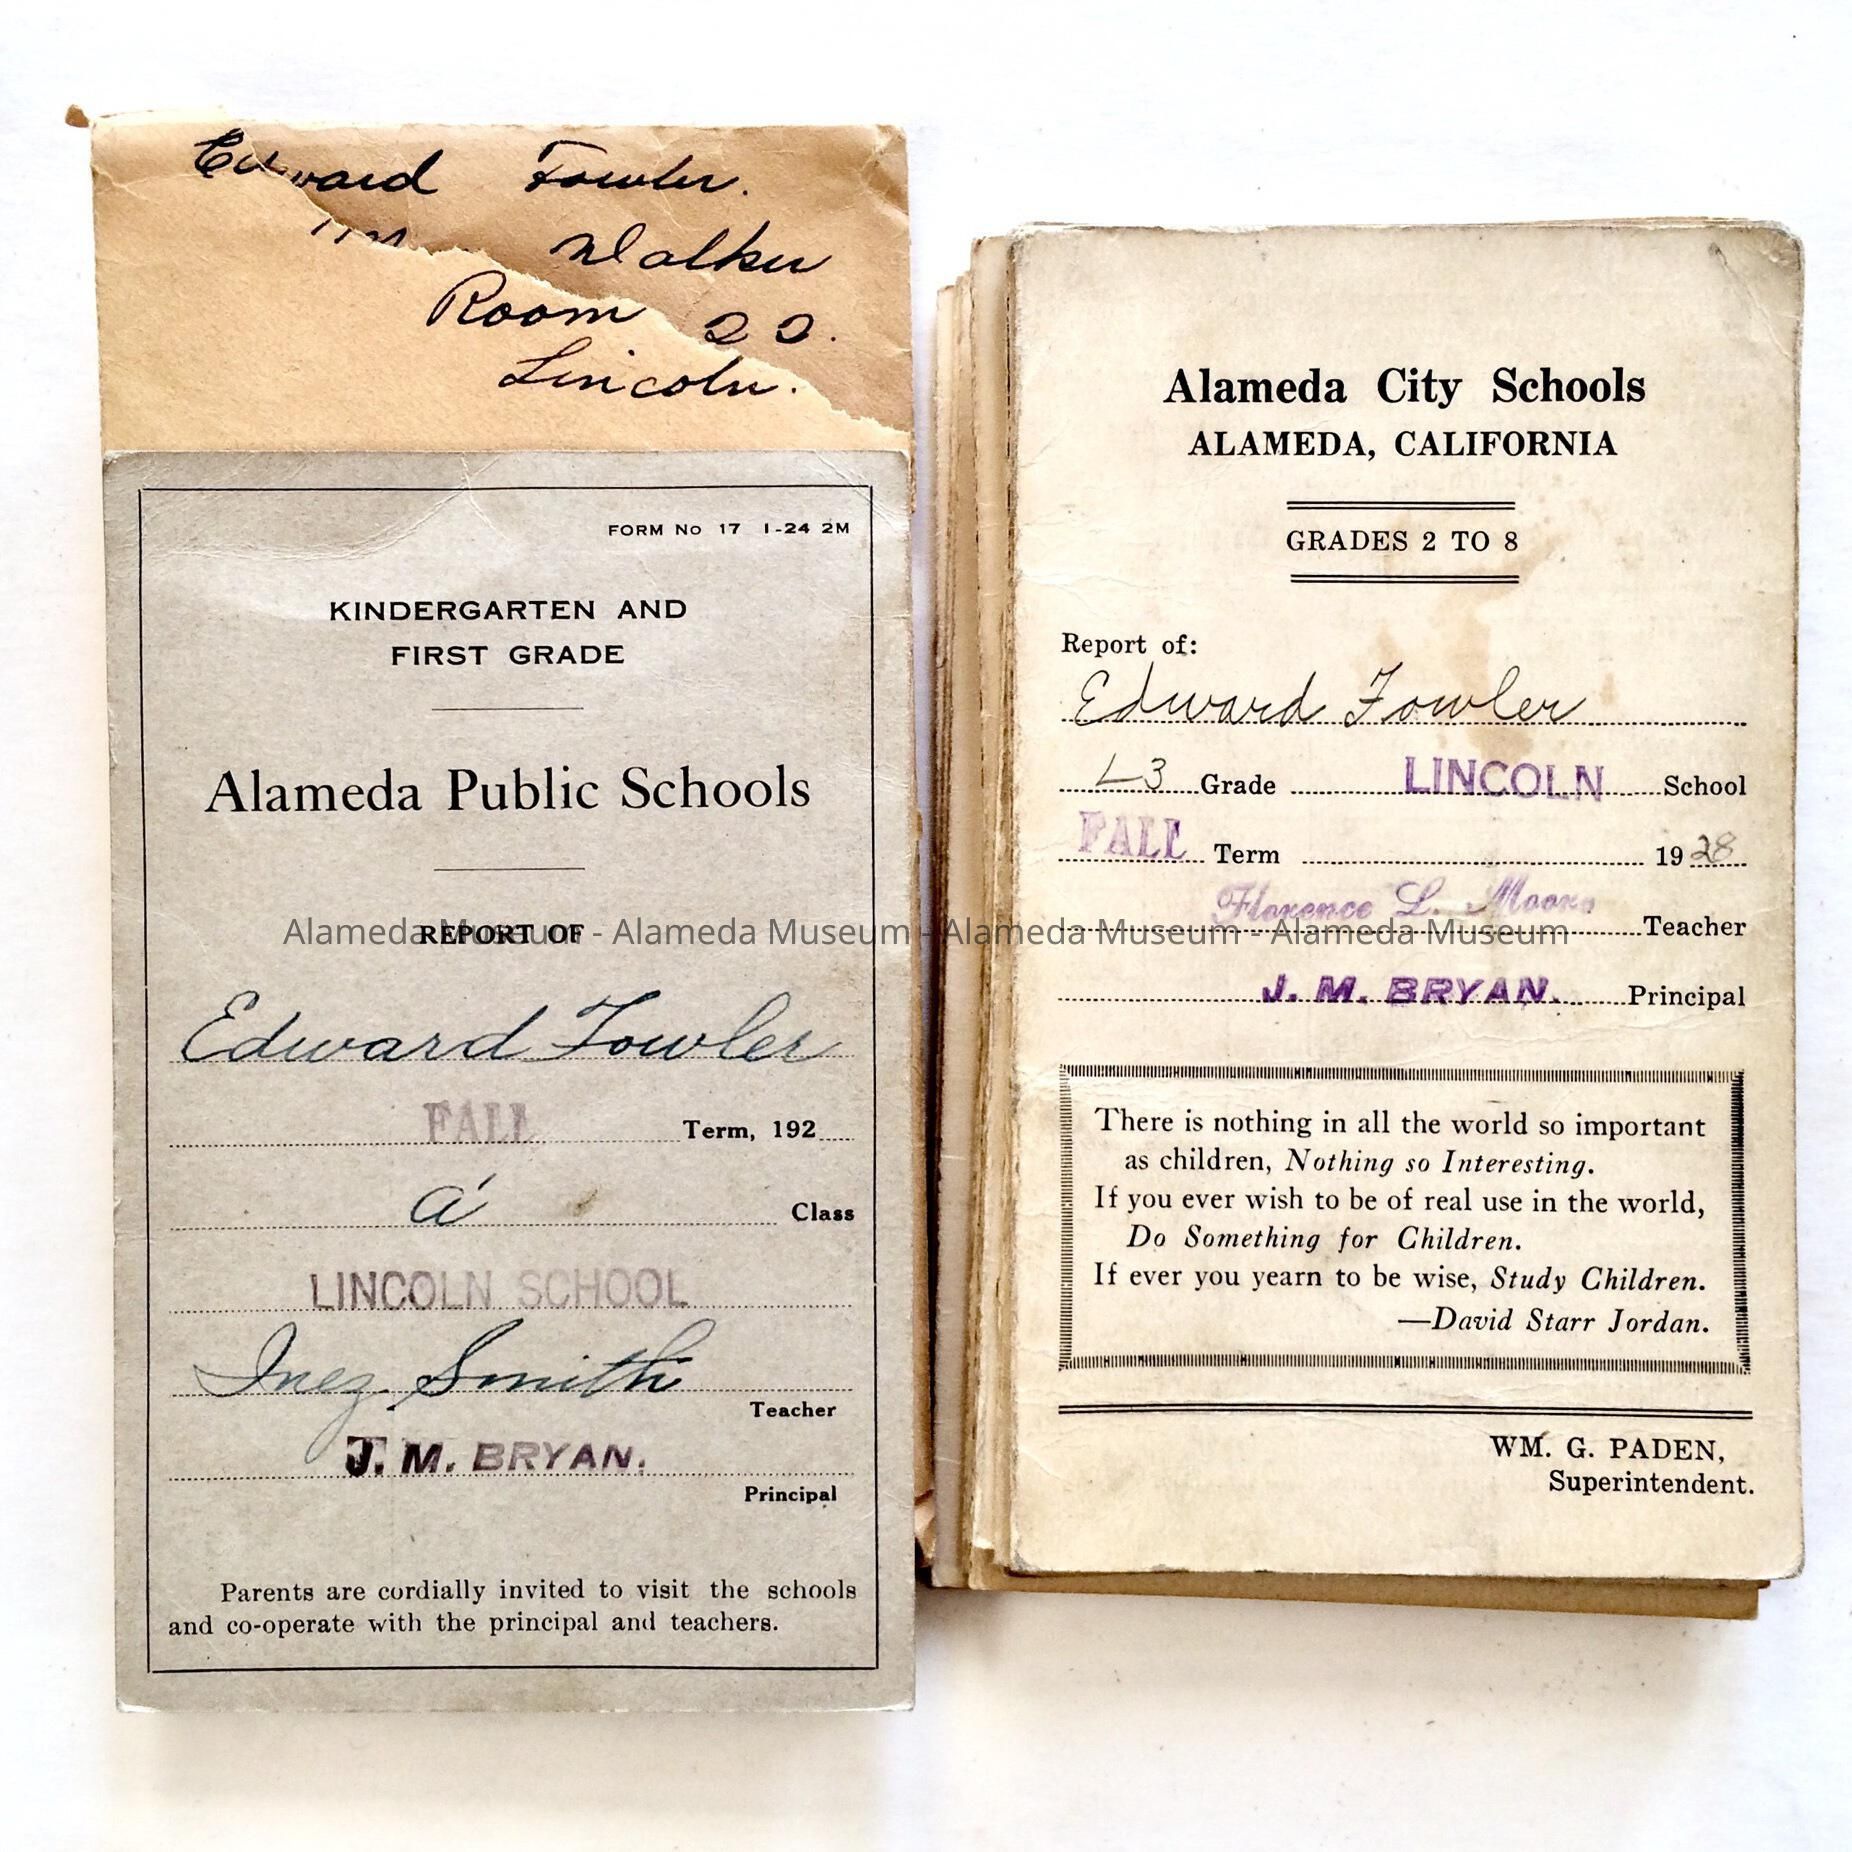 Edward Fowler.
Walker
Room 22.
Lincoln.
FORM No 17 1-24 2M
KINDERGARTEN AND
FIRST GRADE
Alameda Public Schools
REPORT OF
Edward Fowler
FALL Term, 192
a' Class
LINCOLN SCHOOL
Inez Smith
Teacher
J. M. BRYAN.
Principal
Parents are cordially invited to visit the schools
and co-operate with the principal and teachers.
Alameda City Schools
ALAMEDA, CALIFORNIA
GRADES 2 TO 8
Report of:
Edward Fowler
L3 Grade LINCOLN School
FALL Term 1928
Florence L. Moore
Teacher
J. M. BRYAN. Principal
There is nothing in all the world so important
as children, Nothing so Interesting.
If you ever wish to be of real use in the world,
Do Something for Children.
If ever you yearn to be wise, Study Children.
—David Starr Jordan.
WM. G. PADEN,
Superintendent.
Alameda Museum - Alameda Museum - Alameda Museum - Alameda Museum